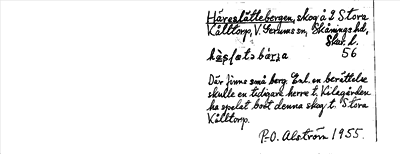 Häreslättebergen, skog å 2 Stora
Kålltorp, V. Gerums sn, Skånings hd,
Skar. l.
56
Där finns små berg. Enl. en berättelse
skulle en tidigare herre t. Kilagården
ha spelat bort denna skog t. Stora
Kålltorp.
P-O. Alström 1955.